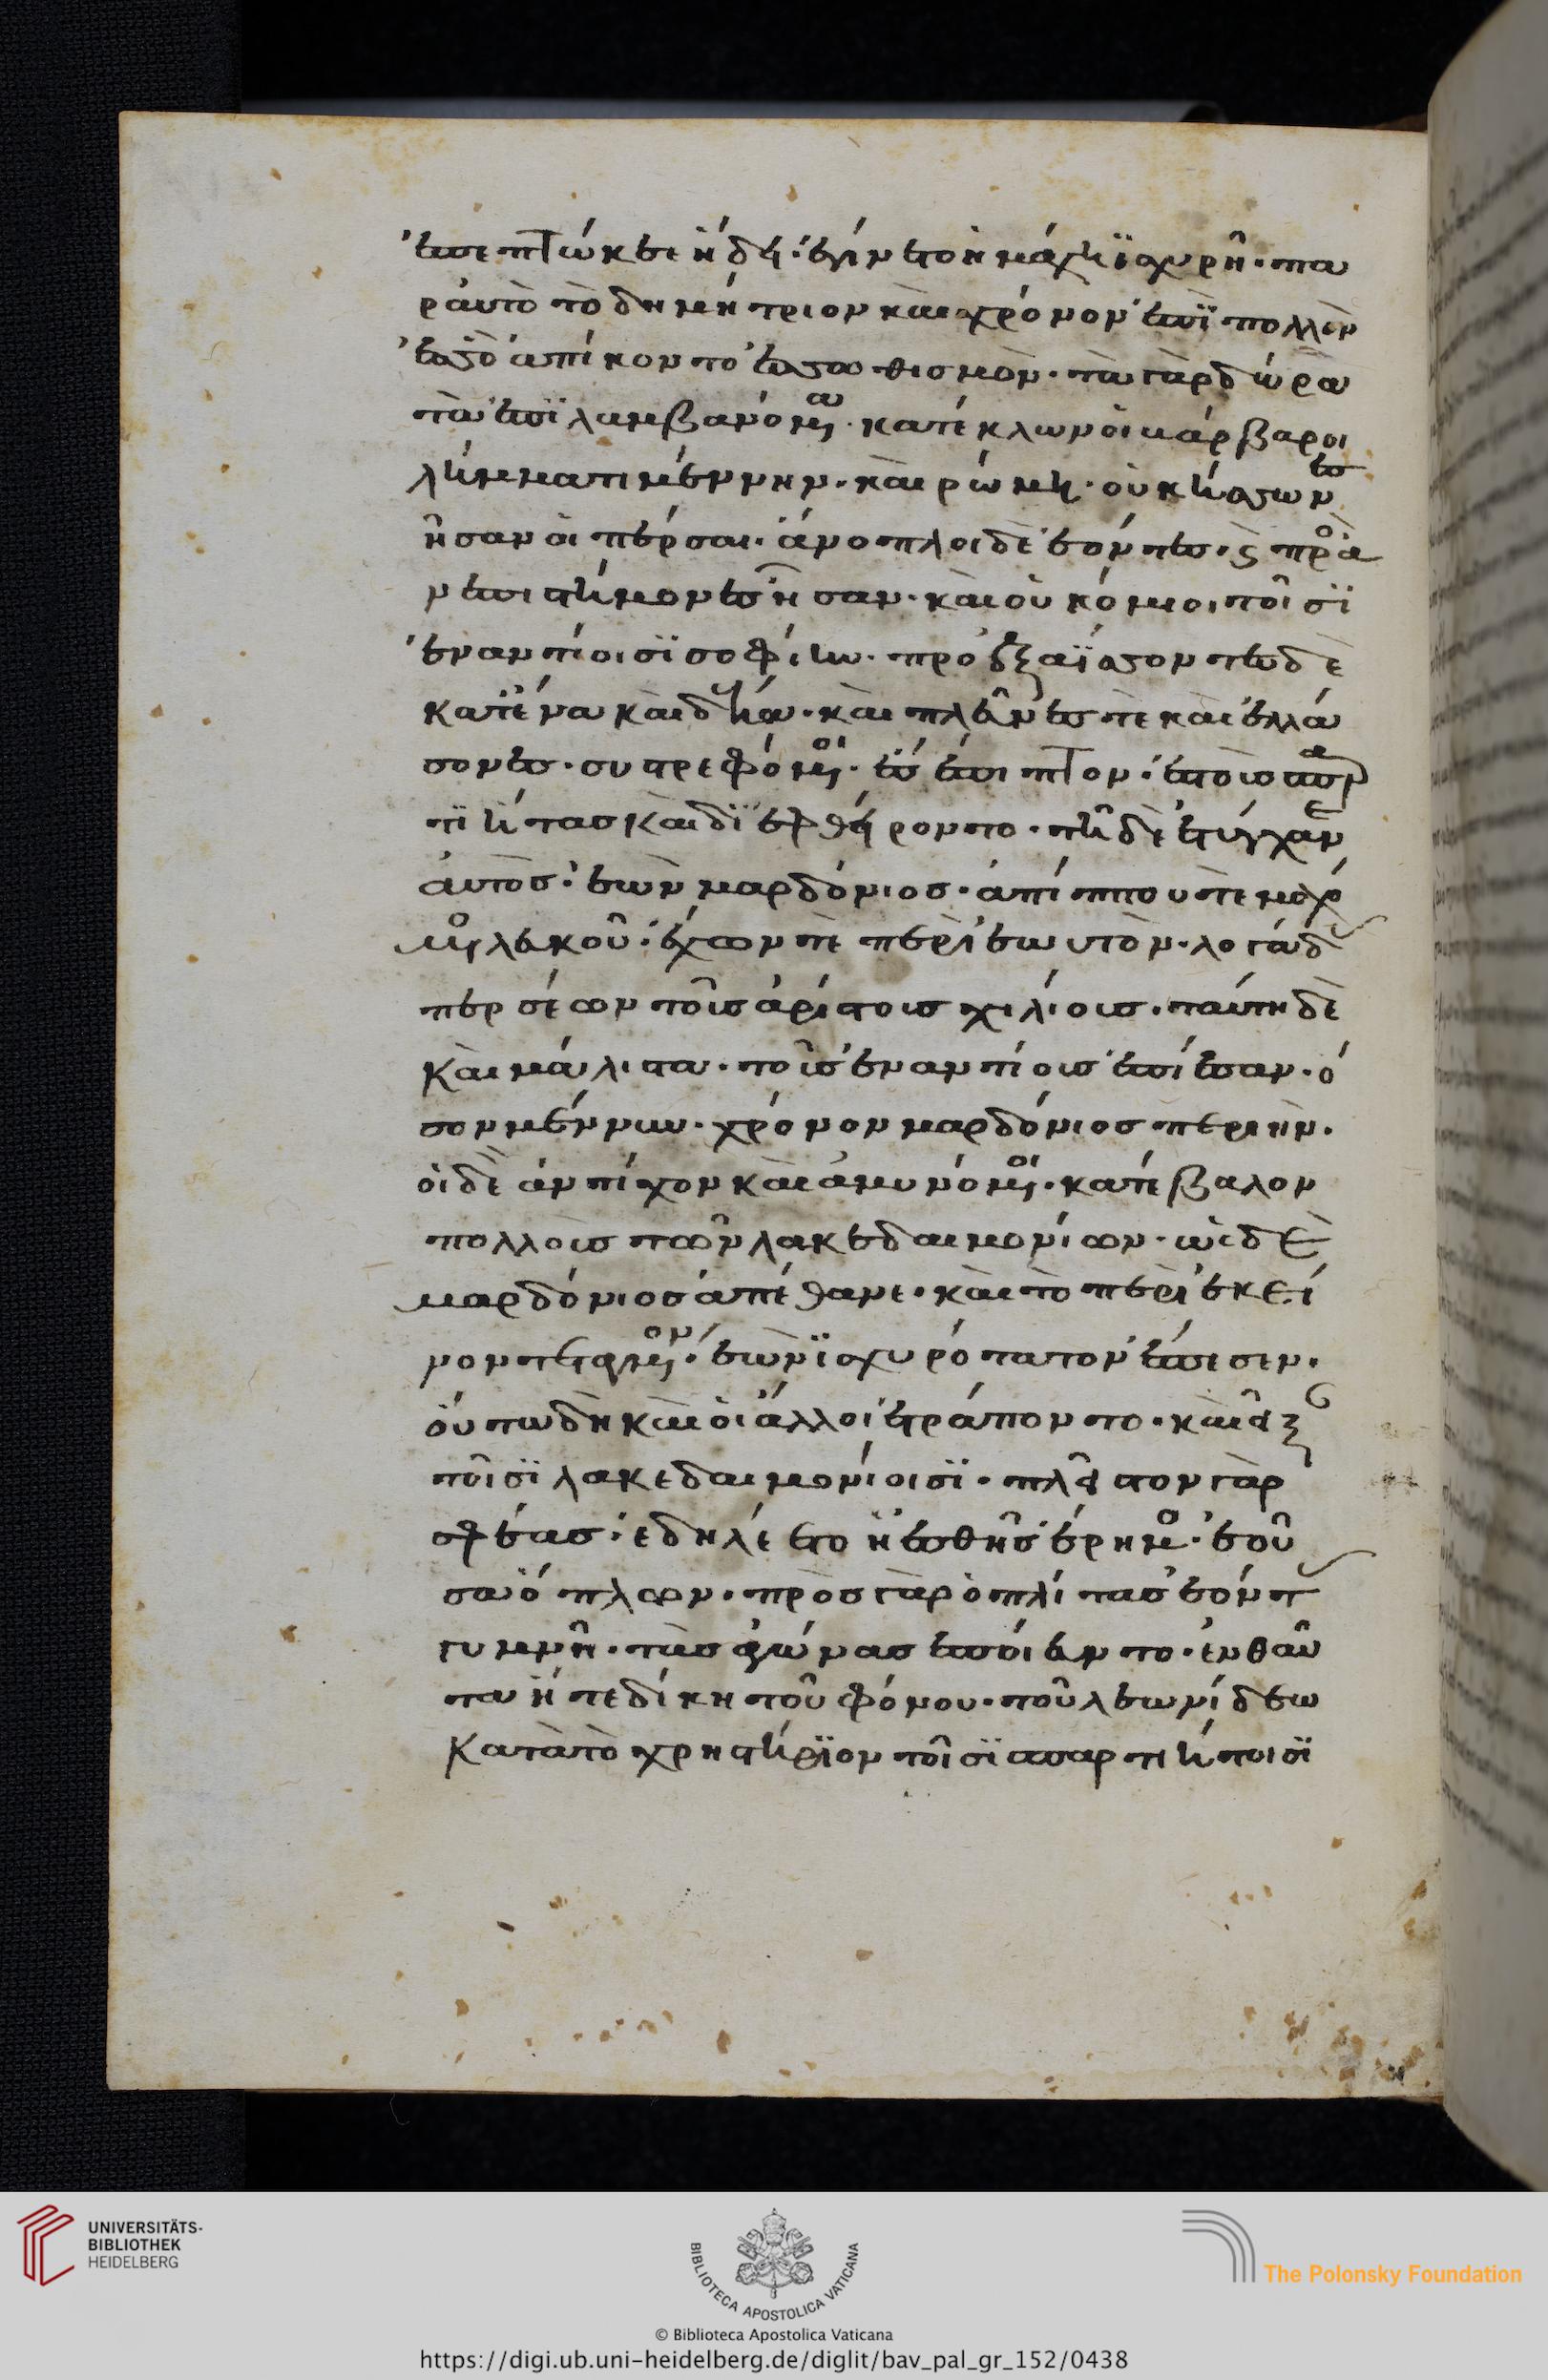 ἐπεπτώκεε ἤδη· ἐγίνετο ἡ μάχη ἰσχυρῆ· πα
ρ' αὐτὸ τὸ δημήτριον καὶ χρόνον ἐπὶ πολλὸν
ἐς ὃ ἀπίκοντο ἐς ὠθισμὸν· τὰ γὰρ δώρα
τα ἐπιλαμβανόμενα· κατέκλων οἱ βάρβαροι
λήμματι μέν νην· καὶ ῥώμη· οὐκ ἥσσωνες
ἦσαν οἱ πέρσαι· ἄνοπλοι δὲ ἐόντες· καὶ πρὸς ἀ
νεπιστήμονες ἦσαν· καὶ οὐκ ὅμοιοι τοῖσϊ
ἐναντίοισϊ σοφίην· προεξαΐσσοντες δὲ
κατ' ἕνα καὶ δέκα· καὶ πλεῦνες τε καὶ ἐλλά
σονες· συστρεφόμενοι· ἐσέπιπτον· ἐς τοὺς σπαρ
τϊήτας καὶ δϊεφθείροντο· τῆ δὲ ἐτύγχανε
αὐτὸς· ἐὼν μαρδόνιος· ἀπ' ἵππου τε μαχό
μενος λευκοῦ· ἔχων τε περὶ ἑωυτὸν· λογάδας
περσέων τοῦς ἀρίστους χιλίους· ταύτη δὲ
καὶ μάλιστα· τοὺς ἐναντίους ἐπίεσαν· ὅ
σον μέν νυν· χρόνον μαρδόνιος περιὴν·
οἱ δὲ ἀντίχον καὶ ἀμυνόμενοι· κατέβαλον
πολλοὺς τῶν λακεδαιμονίων· ὡς δὲ
μαρδόνιος ἀπέθανε· καὶ τὸ περὶ ἐκεῖ
νον τεταγμένον· ἐὼν ἰσχυρότατον ἔπεσεν·
οὕτω δὴ καὶ οἱ ἄλλοι ἐτράποντο· καὶ εἶξαν
τοῖσϊ λακεδαιμονίοισϊ· πλεῖστον γὰρ
σφέας· ἐδηλέετο ἡ ἐσθῆς ἔρημος· ἐοῦ
σα ὅπλων· πρὸς γὰρ ὁπλίτας ἐόντες
γυμνῆτας ἀγώνας ἐποίευντο· ἐνθαῦ
τα ἥ τε δίκη τοῦ φόνου· τοῦ λεωνίδεω
κατὰ τὸ χρηστήρϊον τοῖσϊ σπαρτιήτοισϊ
UNIVERSITÄTS-
BIBLIOTHEK
HEIDELBERG
BIBLIOTECA APOSTOLICA VATICANA
The Polonsky Foundation
© Biblioteca Apostolica Vaticana
https://digi.ub.uni-heidelberg.de/diglit/bav_pal_gr_152/0438